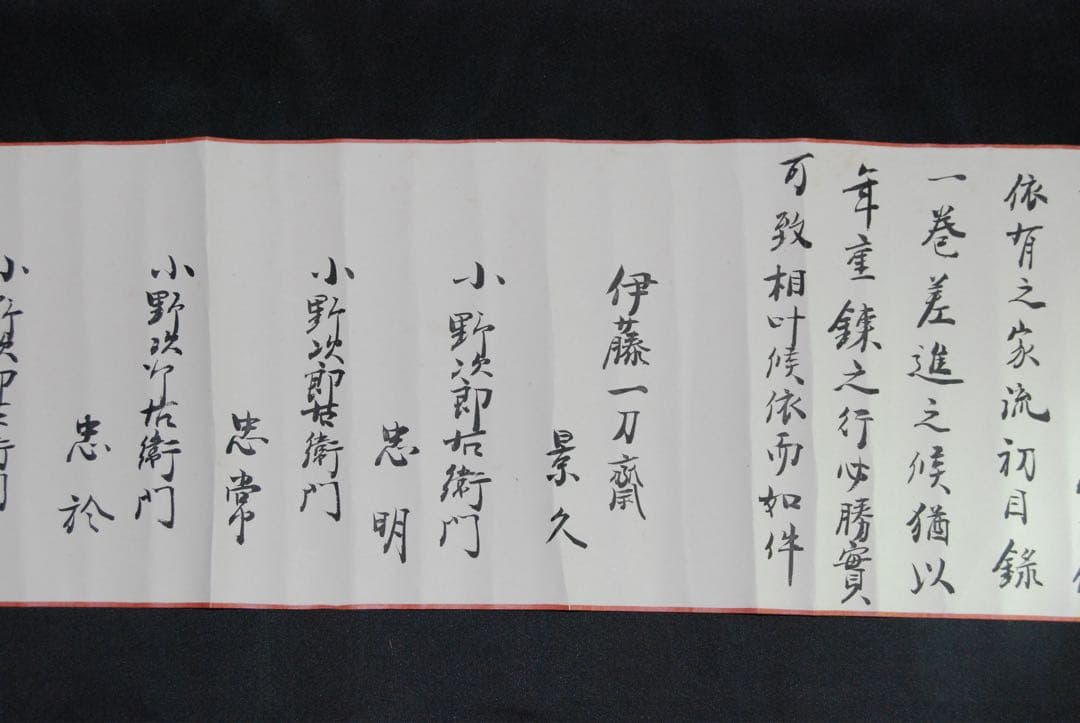 依有之家流初目録
一巻差進之候猶以
年重錬之行必勝實
可致相叶候依而如件
伊藤一刀齋
景久
小野次郎右衛門
忠明
小野次郎右衛門
忠常
小野次郎右衛門
忠於
小野次郎右衛門